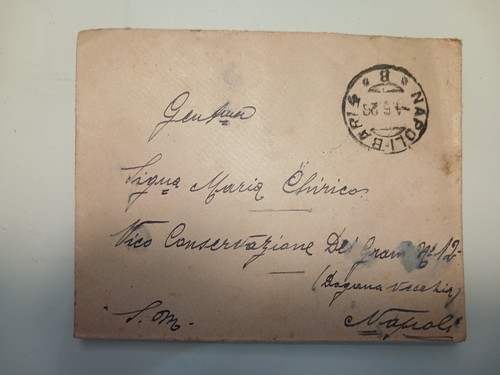 NAPOLI-BARI
* B *
4.5.26
Gent.ma
Signa Maria Chirico.
Vico Conservazione Dei Grani No 12
(Dogana Vecchia)
S. M. Napoli